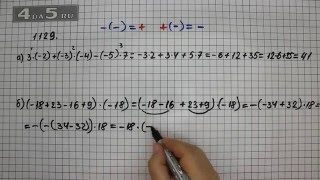 4DA5.RU
-(-)=+ +(-)=-
1129.
а) 3·(-2)+(-3)·(-4)-(-5)·7=-3·2+3·4+5·7=-6+12+35=12-6+35=41
б) (-18+23-16+9)·(-18)=(-18-16+23+9)·(-18)=-(-34+32)·18=
=-(-(34-32))·18=-18·(-